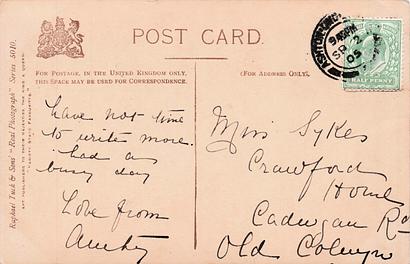 POST CARD.
FOR POSTAGE, IN THE UNITED KINGDOM ONLY,
THIS SPACE MAY BE USED FOR CORRESPONDENCE.
(FOR ADDRESS ONLY).
Have not time
to write more.
had a
busy day
Love from
Miss Sykes
Crawford
Home
Cadwgan Rd
Old Colwyn
HALF PENNY
Raphael Tuck & Sons' "Real Photograph" Series 5010.
ART PUBLISHERS TO THEIR MAJESTIES THE KING & QUEEN.